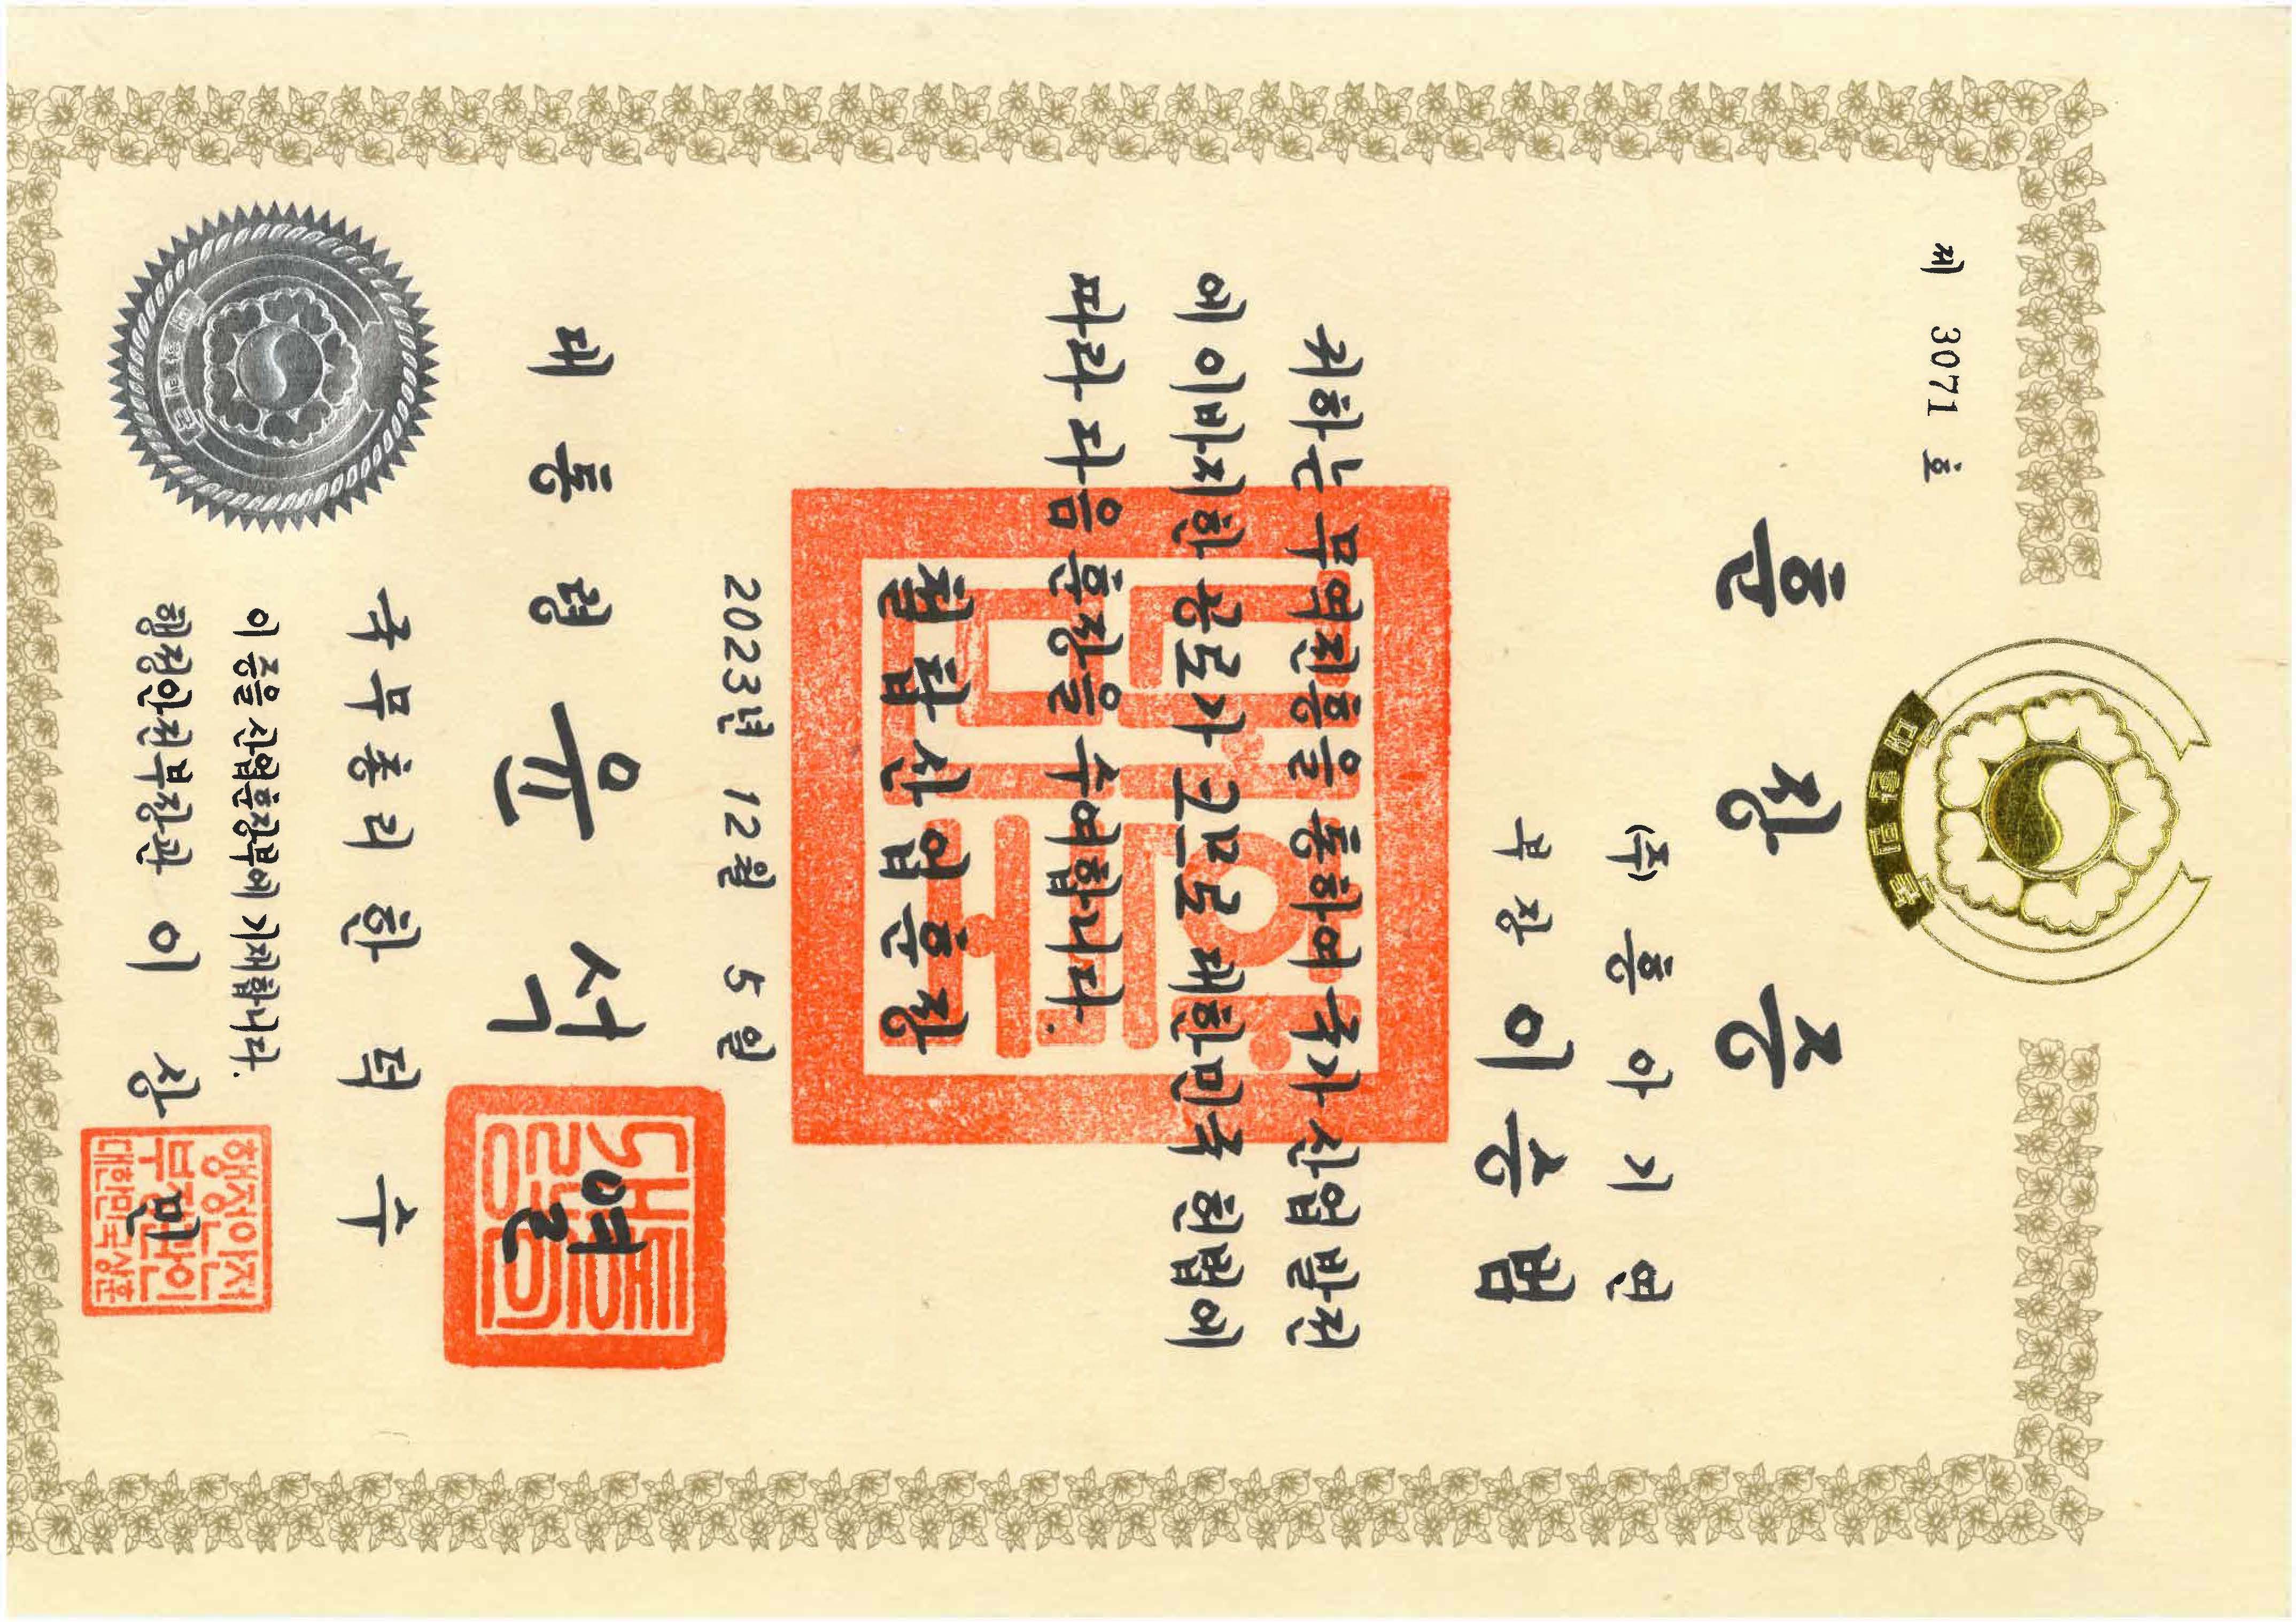 제 3071 호
대한민국
훈장증
(주) 흥아기연
부장 이송범
귀하는 무역진흥을 통하여 국가 산업발전
에 이바지한 공로가 크므로 대한민국 헌법에
따라 다음 훈장을 수여합니다.
철탑산업훈장
2023년 12월 5일
대통령 윤석열
국무총리 한덕수
이 증을 산업훈장부에 기재합니다.
행정안전부장관 이상민
대한민국